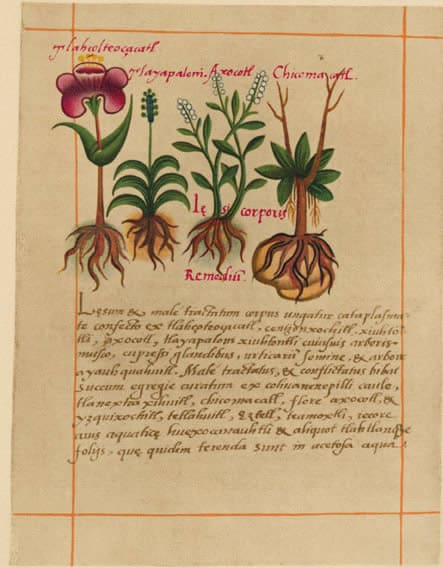 Tlahçolteoçacatl.
Tlayapaloni. Axocotl. Chicomacatl.
Lęsi corporis
Remediū.
Lęsum & male tractatum corpus ungatur cataplasma-
te confecto ex tlahçolteoçacatl, xiuhton-
tli, axocotl, tlayapaloni xiuhtontli cuiusuis arboris
musco, cupressi glandibus, urticarū semine, & arbore
ayauh quahuitl. Male tractatus, & conflictatus bibat
succum egregie curatum ex cohuanenepilli caule,
tlanextia xihuitl, chicomacatl, flore axocotl, &
yzquixochitl, tetlahuitl, eztetl, teamoxtli, iecore
auis aquaticę huexocanauhtli & aliquot tlahtlançe
folijs, quę quidem terenda sunt in acetosa aqua.